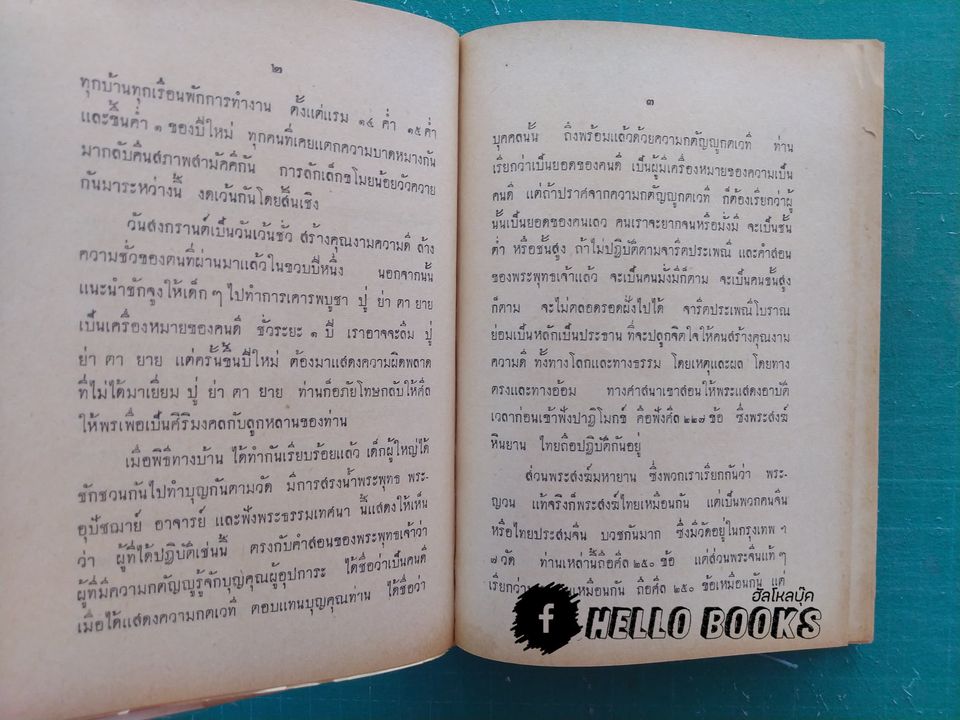 ๒
ทุกบ้านทุกเรือนพักการทำงาน ตั้งแต่แรม ๑๔ ค่ำ ๑๕ ค่ำ
และขึ้นค่ำ ๑ ของปีใหม่ ทุกคนที่เคยแตกความบาดหมางกัน
มากลับคืนสภาพสามัคคีกัน การลักเล็กขโมยน้อยวัวควาย
กันมาระหว่างนี้ งดเว้นกันโดยสิ้นเชิง
วันสงกรานต์เป็นวันเว้นชั่ว สร้างคุณงามความดี ล้าง
ความชั่วของตนที่ผ่านมาแล้วในขวบปีหนึ่ง นอกจากนั้น
แนะนำชักจูงให้เด็ก ๆ ไปทำการเคารพบูชา ปู่ ย่า ตา ยาย
เป็นเครื่องหมายของคนดี ชั่วระยะ ๑ ปี เราอาจจะลืม ปู่
ย่า ตา ยาย แต่ครั้นขึ้นปีใหม่ ต้องมาแสดงความผิดพลาด
ที่ไม่ได้มาเยี่ยม ปู่ ย่า ตา ยาย ท่านก็อภัยโทษกลับให้ศีล
ให้พรเพื่อเป็นศิริมงคลกับลูกหลานของท่าน
เมื่อพิธีทางบ้าน ได้ทำกันเรียบร้อยแล้ว เด็กผู้ใหญ่ได้
ชักชวนกันไปทำบุญกันตามวัด มีการสรงน้ำพระพุทธ พระ-
อุปัชฌาย์ อาจารย์ และฟังพระธรรมเทศนา นี้แสดงให้เห็น
ว่า ผู้ที่ได้ปฏิบัติเช่นนี้ ตรงกับคำสอนของพระพุทธเจ้าว่า
ผู้ที่มีความกตัญญูรู้จักบุญคุณผู้อุปการะ ได้ชื่อว่าเป็นคนดี
เมื่อได้แสดงความกตเวที ตอบแทนบุญคุณท่าน ได้ชื่อว่า
๓
บุคคลนั้น ถึงพร้อมแล้วด้วยความกตัญญูกตเวที ท่าน
เรียกว่าเป็นยอดของคนดี เป็นผู้มีเครื่องหมายของความเป็น
คนดี แต่ถ้าปราศจากความกตัญญูกตเวที ก็ต้องเรียกว่าผู้
นั้นเป็นยอดของคนเลว คนเราจะยากจนหรือมั่งมี จะเป็นชั้น
ต่ำ หรือชั้นสูง ถ้าไม่ปฏิบัติตามจารีตประเพณี และคำสอน
ของพระพุทธเจ้าแล้ว จะเป็นคนมั่งมีก็ตาม จะเป็นคนชั้นสูง
ก็ตาม จะไม่ตลอดรอดฝั่งไปได้ จารีตประเพณีโบราณ
ย่อมเป็นหลักเป็นประธาน ที่จะปลุกจิตใจให้คนสร้างคุณงาม
ความดี ทั้งทางโลกและทางธรรม โดยเหตุและผล โดยทาง
ตรงและทางอ้อม ทางศาสนาเขาสอนให้พระแสดงอาบัติ
เวลาก่อนเข้าฟังปาฏิโมกข์ คือฟังศีล ๒๒๗ ข้อ ซึ่งพระสงฆ์
หินยาน ไทยถือปฏิบัติกันอยู่
ส่วนพระสงฆ์มหายาน ซึ่งพวกเราเรียกกันว่า พระ-
ญวน แท้จริงก็พระสงฆ์ไทยเหมือนกัน แต่เป็นพวกคนจีน
หรือไทยประสมจีน บวชกันมาก ซึ่งมีวัดอยู่ในกรุงเทพ ฯ
๗ วัด ท่านเหล่านี้ถือศีล ๒๕๐ ข้อ แต่ส่วนพระจีนแท้ ๆ
เรียกว่า เหมือนกัน ถือศีล ๒๕๐ ข้อเหมือนกัน แต่
ฮัลโหลบุ๊ค
f HELLO BOOKS